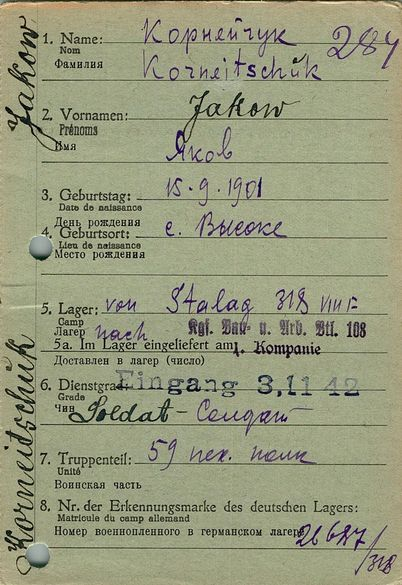 Jakow
Korneitschuk
1. Name: Корнейчук
Nom
Фамилия Korneitschük
284
2. Vornamen: Jakow
Prénoms
Имя
Яков
3. Geburtstag: 15-9-1901
Date de naissance
День рождения
4. Geburtsort: с. Высоке
Lieu de naissance
Место рождения
5. Lager: von Stalag 318 VIII F
Camp
Лагер nach Kgf. Bau- u. Arb. Btl. 108
5a. Im Lager eingeliefert am 1. Kompanie
Доставлен в лагер (число)
6. Dienstgrad: Eingang 3.11 42
Grade
Чин Soldat - Солдат
7. Truppenteil: 59 пех. полк
Unité
Воинская часть
8. Nr. der Erkennungsmarke des deutschen Lagers:
Matricule du camp allemand
Номер военнопленного в германском лагере
/318